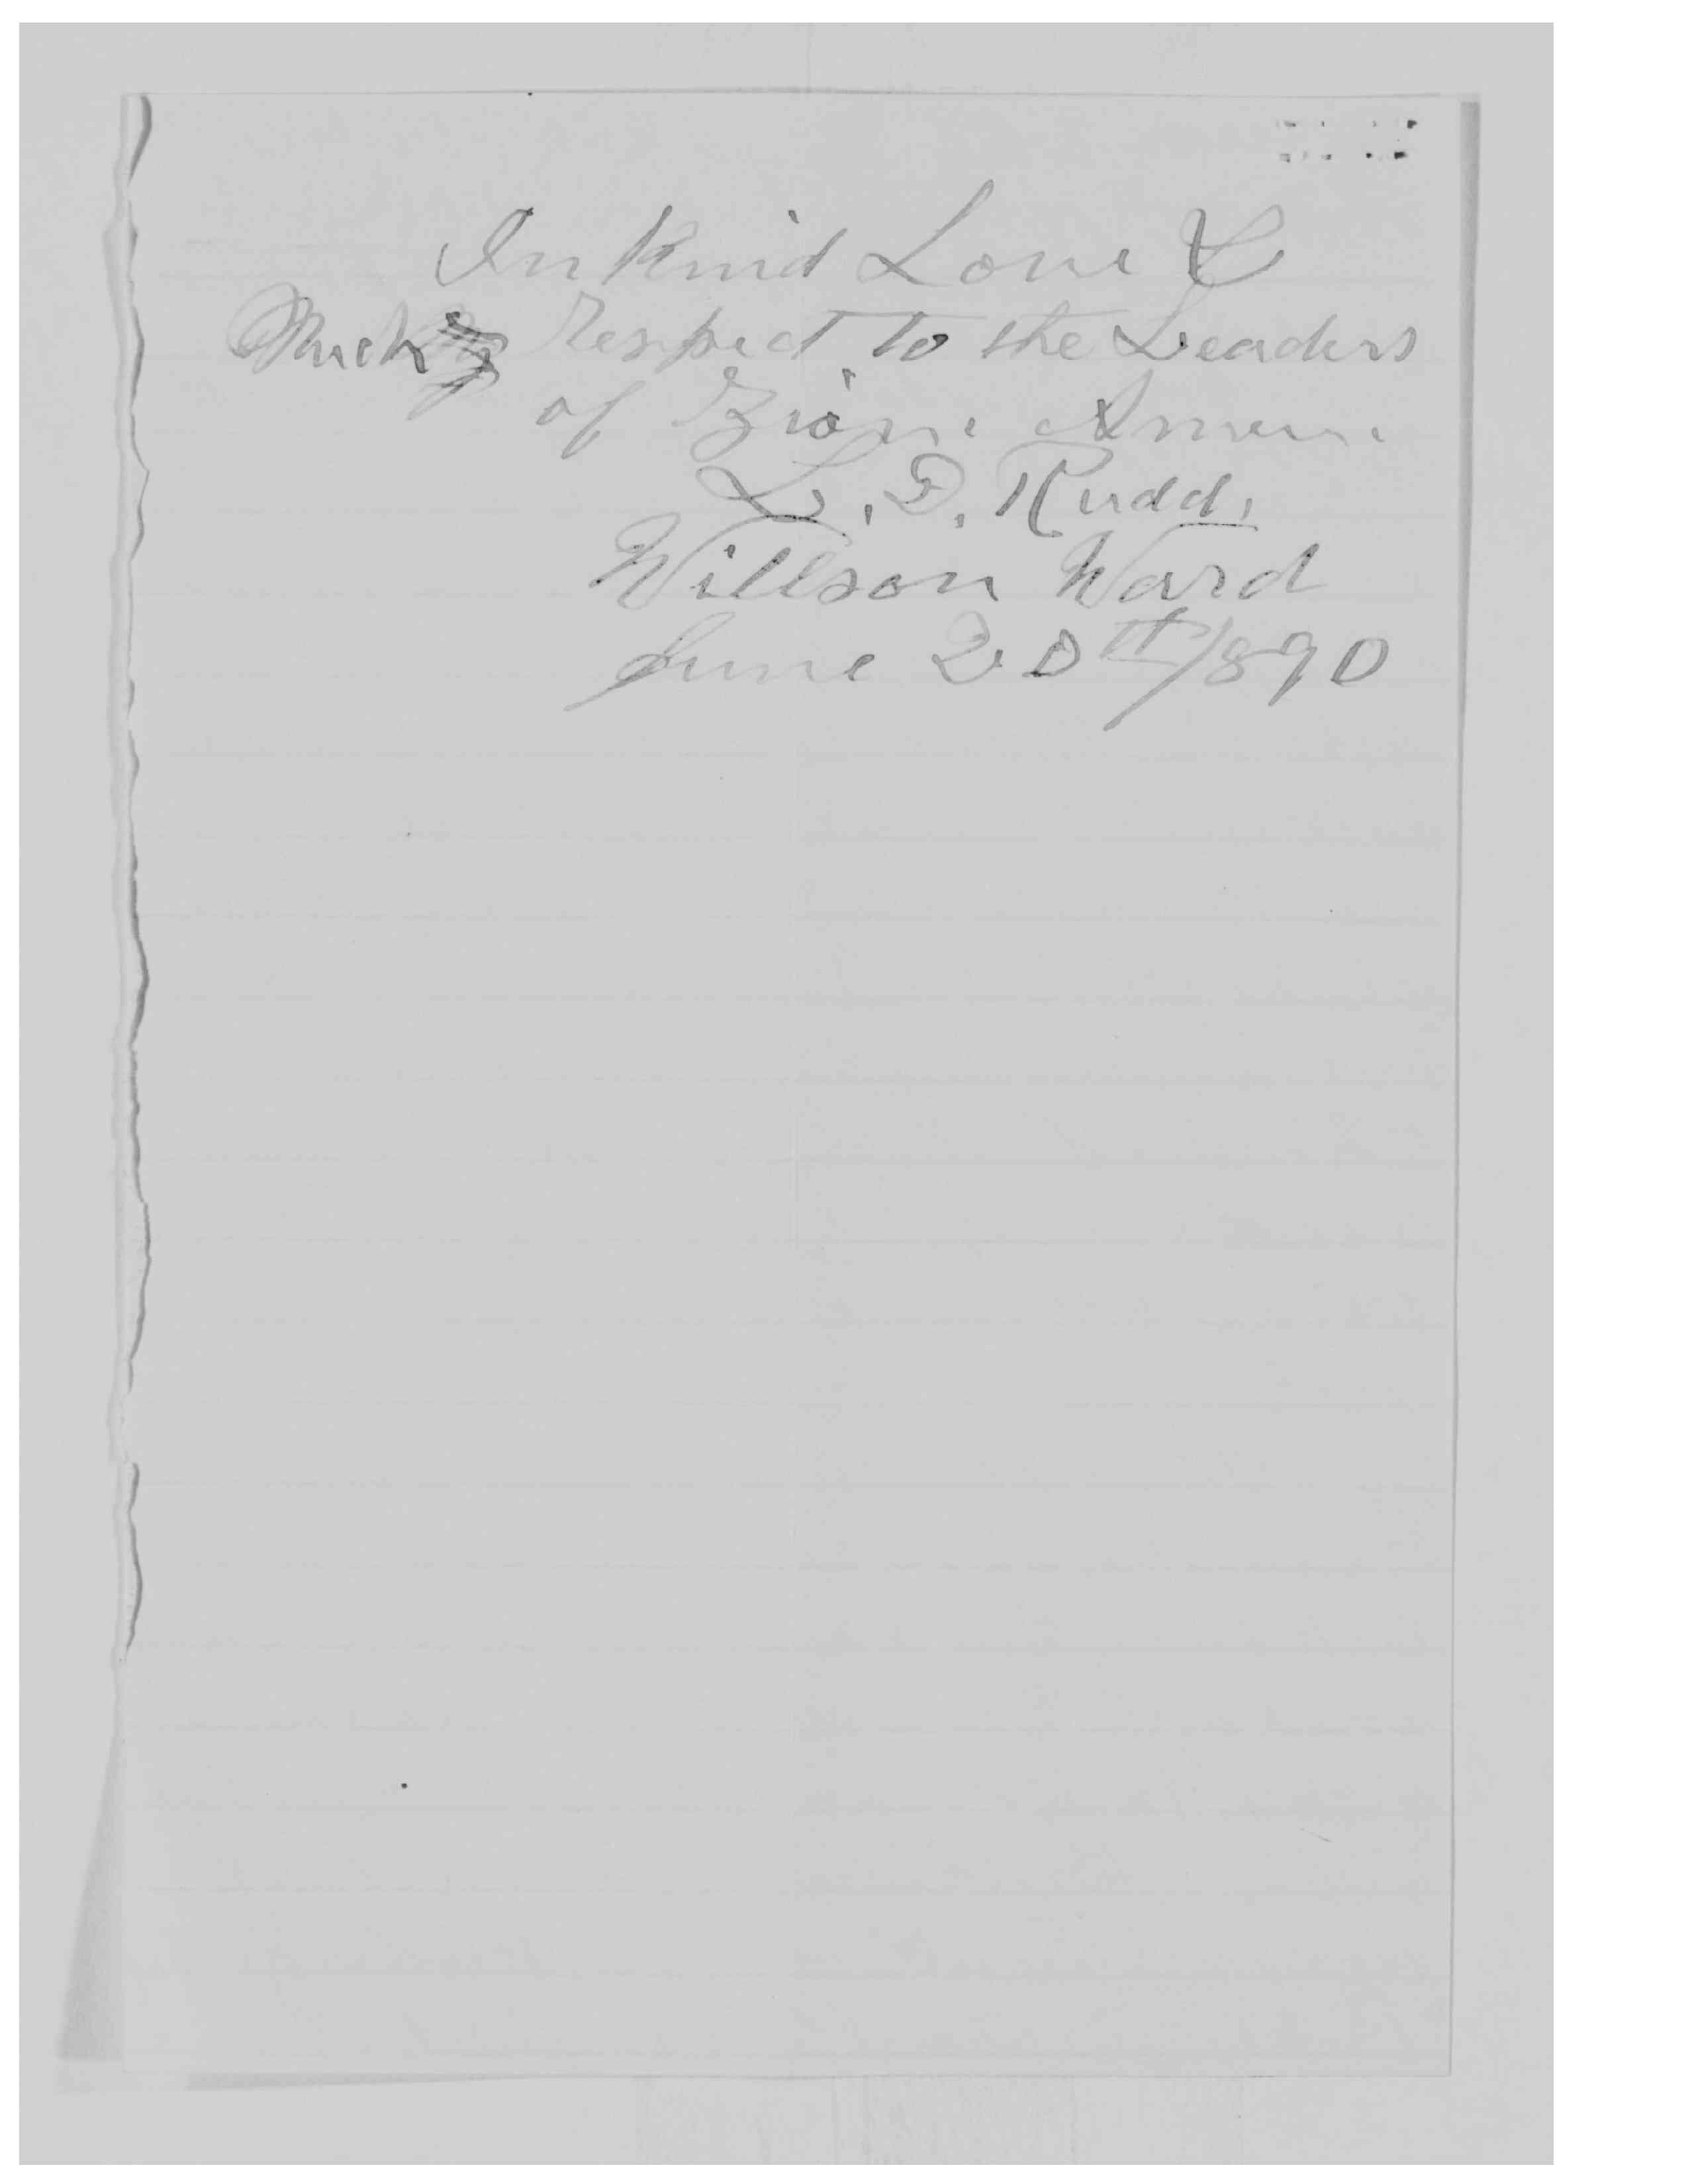 In Kind Love &
Much Respect to the Leaders
of Zion. Amen.
L. D. Rudd,
Willson Ward
June 20th/890